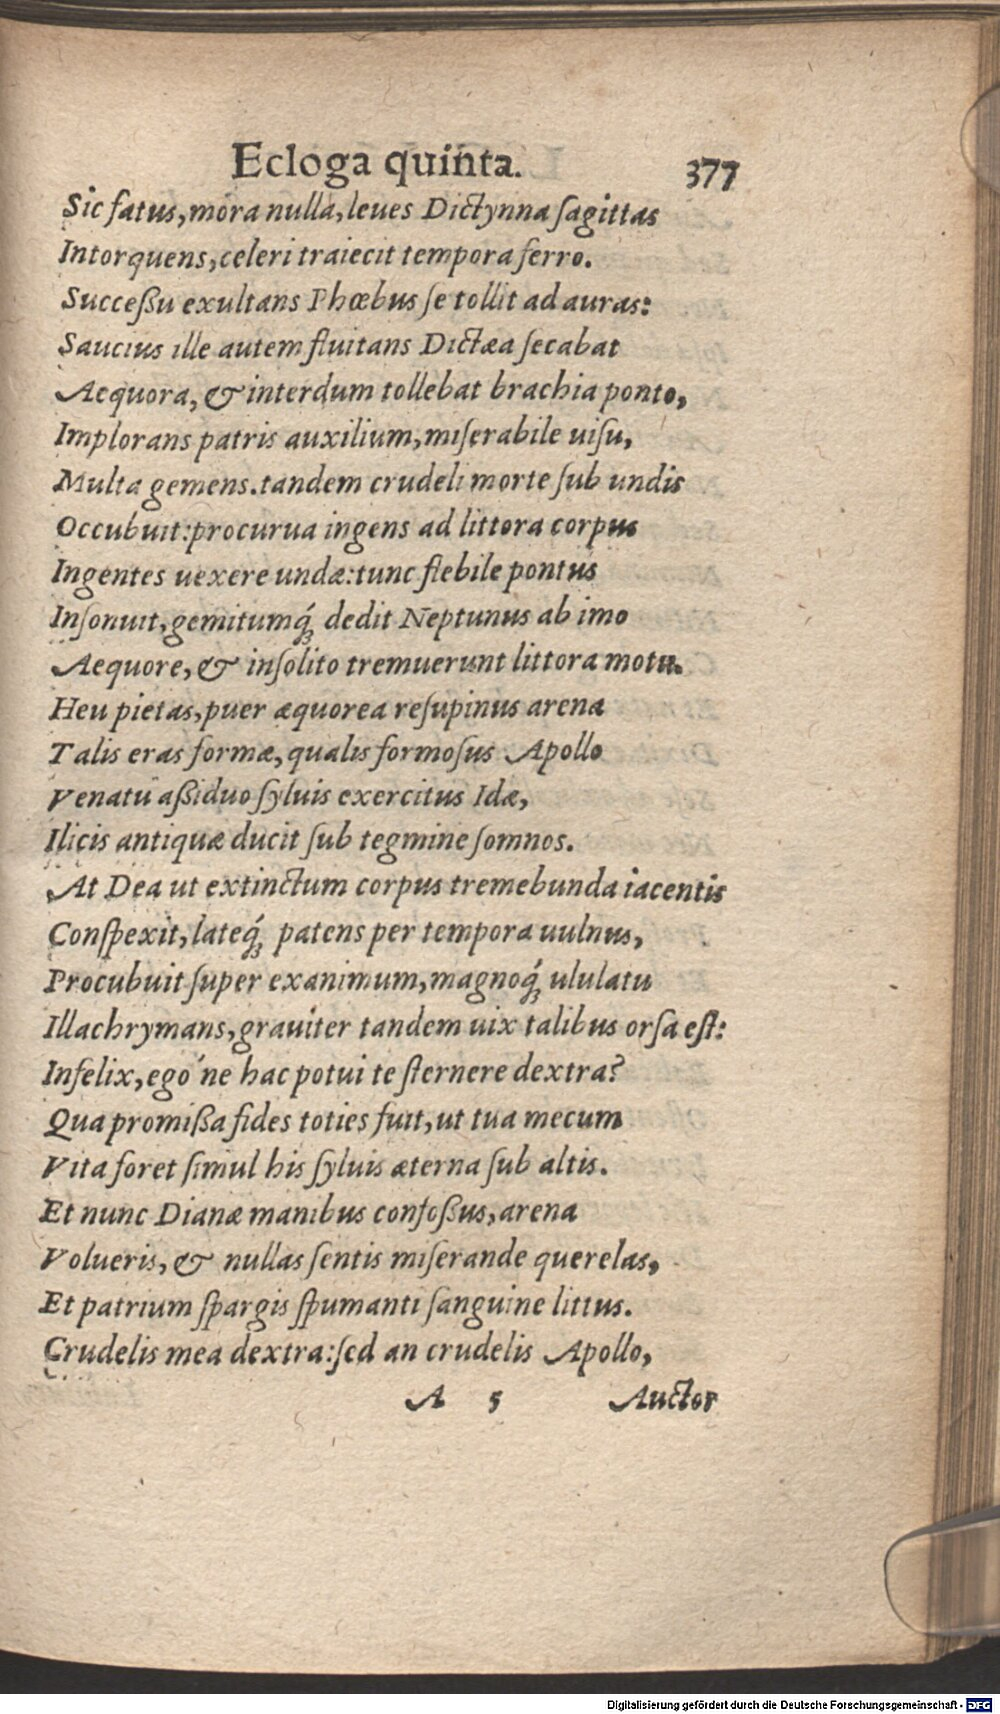 Ecloga quinta. 377
Sic fatus, mora nulla, leues Dictynna ſagittas
Intorquens, celeri traiecit tempora ferro.
Succeßu exultans Phœbus ſe tollit ad auras:
Saucius ille autem fluitans Dictæa ſecabat
Aequora, & interdum tollebat brachia ponto,
Implorans patris auxilium, miſerabile uiſu,
Multa gemens. tandem crudeli morte ſub undis
Occubuit: procurua ingens ad littora corpus
Ingentes uexere undæ: tunc flebile pontus
Inſonuit, gemitumq́ꝫ dedit Neptunus ab imo
Aequore, & inſolito tremuerunt littora motu.
Heu pietas, puer æquorea reſupinus arena
Talis eras formæ, qualis formoſus Apollo
Venatu aßiduo ſyluis exercitus Idæ,
Ilicis antiquæ ducit ſub tegmine ſomnos.
At Dea ut extinctum corpus tremebunda iacentis
Conſpexit, lateq́ꝫ patens per tempora uulnus,
Procubuit ſuper exanimum, magnoq́ꝫ ululatu
Illachrymans, grauiter tandem uix talibus orſa eſt:
Infelix, egó ne hac potui te ſternere dextra?
Qua promißa fides toties fuit, ut tua mecum
Vita foret ſimul his ſyluis æterna ſub altis.
Et nunc Dianæ manibus confoßus, arena
Volueris, & nullas ſentis miſerande querelas,
Et patrium ſpargis ſpumanti ſanguine littus.
Crudelis mea dextra: ſed an crudelis Apollo,
A 5 Auctor
Digitalisierung gefördert durch die Deutsche Forschungsgemeinschaft - DFG